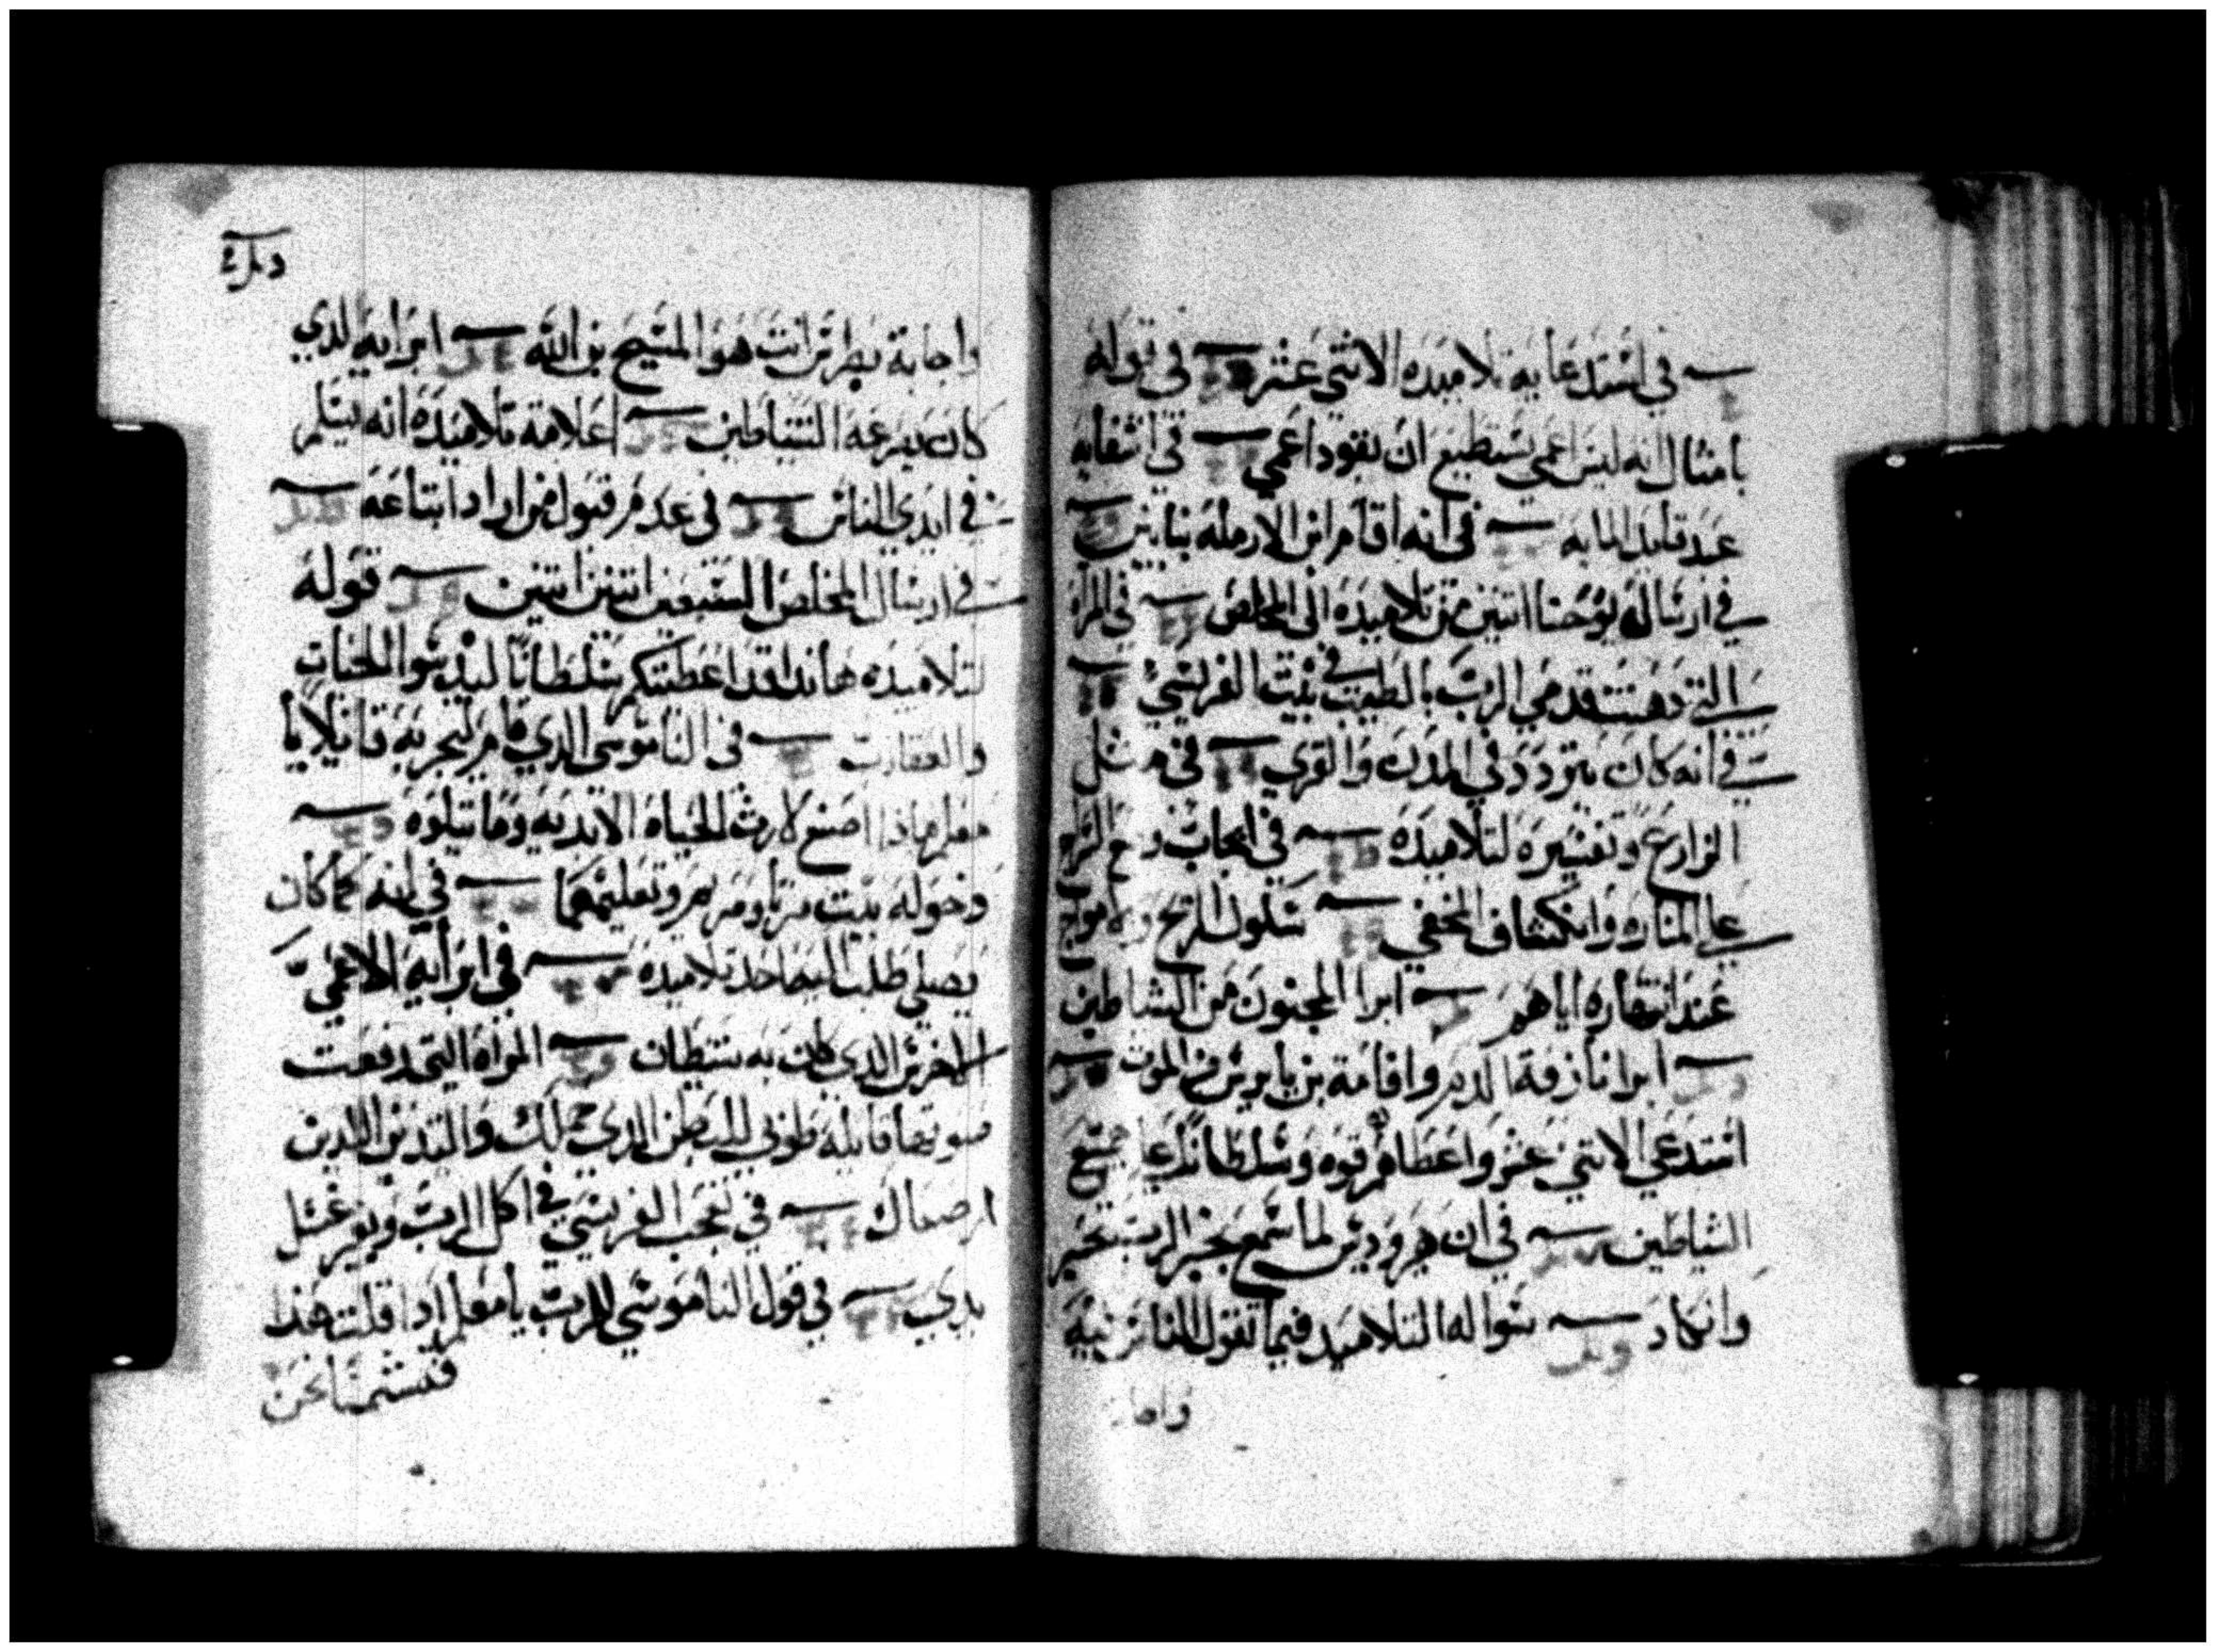 في استدعايه تلاميده الاثني عشر في قوله
بامثال انه ليس اعمي يستطيع ان يقود اعمي في اشفايه
عبد قايد المايه في انه اقام ابن الارمله بنايين
في ارساله يوحنا اتنين من تلاميده الي المخلص في المراه
التي دهنت قدمي الرب بالطيب في بيت الفريسي
في انه كان يتردد في المدن والقري في مثل
الزارع وتفسيره لتلاميده في ايجاب وضع السراج
علي المناره وانكشاف المخفي سكون الريح والامواج
عند انتهاره اياهم ابرا المجنون من الشياطين
ابرا نازفة الدم واقامة بن يايرس من الموت
استدعي الاتني عشر واعطاهم قوه وسلطانا علي جميع
الشياطين في ان هيرودس لما سمع بخبر الرب تحير
وانكاد سواله التلاميد فيما تقول الناس فيه
واجابة
واجابة بطرس انت هو المسيح بن الله ابرايه الدي
كان يصرعه الشياطين اعلامه تلاميده انه يسلم
في ايدي الناس في عدم قبول من اراد اتباعه
في ارسال المخلص السبعين اتنين اتنين قوله
لتلاميده هاندا قد اعطيتكم سلطانا ليدوسوا الحيات
والعقارب في الناموسي الدي قام ليجربه قايلا يا
معلم ماذا اصنع لارث الحياه الابديه وما يتلوه
دخوله بيت مرتا ومريم وتعليمهما في انه لما كان
يصلي طلب اليه احد تلاميده في ابرايه الاعمي
الاخرس الدي كان به شيطان المراه التي رفعت
صوتها قايله طوبي للبطن الدي حملك والتديين اللدين
ارضعاك في تعجب الفريسي في اكل الرب ولم يغسل
يدي في قول الناموسي للرب يا معلم ادا قلت هذا
فتشتمنا نحن